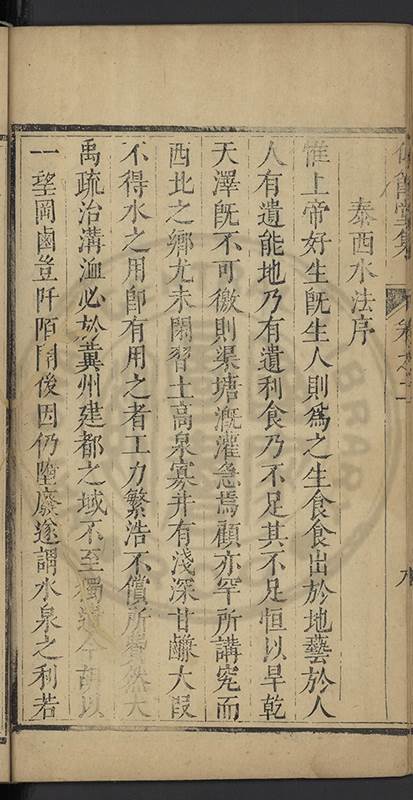 泰西水法序
惟上帝好生既生人則爲之生食食出於地藝於人
人有遺能地乃有遺利食乃不足其不足恒以旱乾
天澤旣不可徼則渠塘漑灌急焉顧亦罕所講究而
西北之鄉尤未閑習土高泉寡井有淺深甘鹹大叚
不得水之用卽有用之者工力繁浩不償所費然大
禹疏治溝洫必於冀州建都之域不至獨遺今胡以
一望岡鹵豈阡陌開後因仍墮廢遂謂水泉之利若
堂集
卷之二